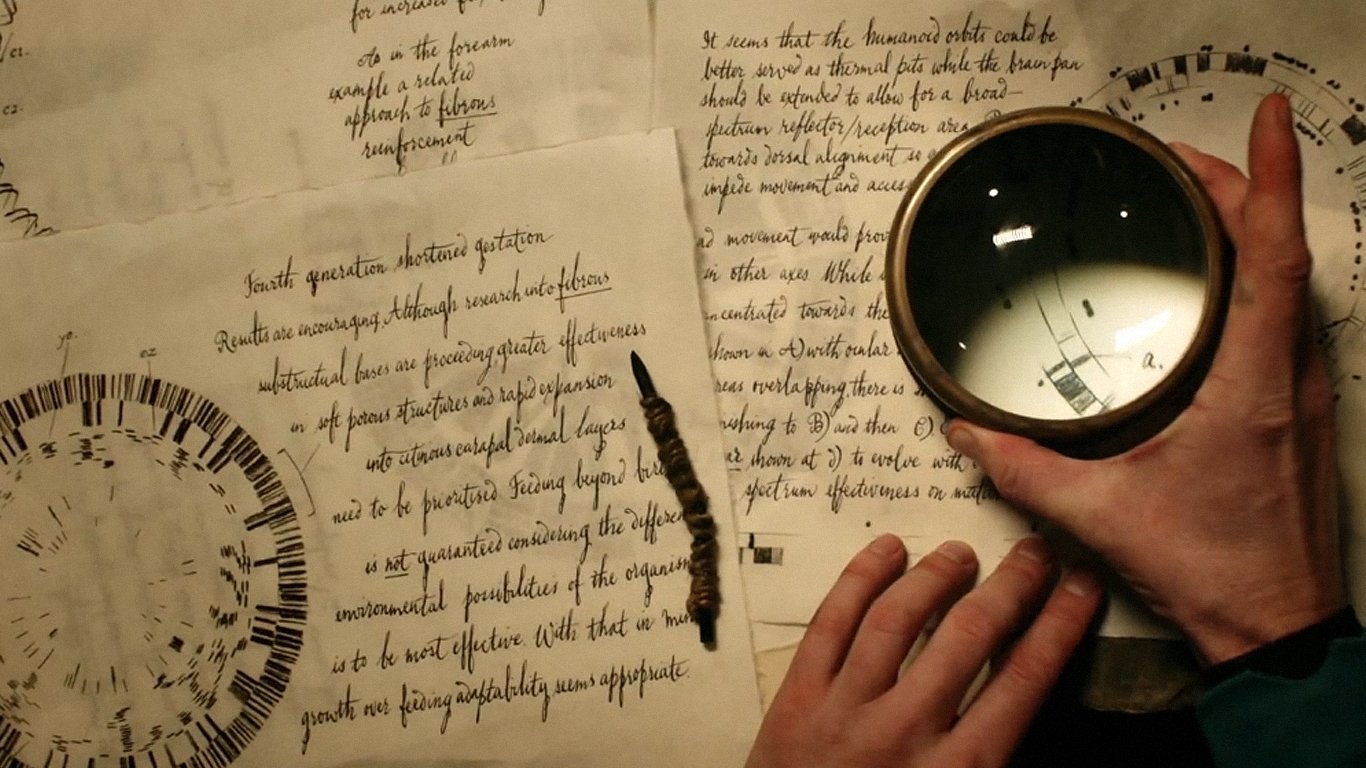 c1.
c2.
for increased
As in the forearm
example a related
approach to fibrous
reinforcement
Fourth generation shortened gestation
Results are encouraging. Although research into fibrous
substructual bases are proceeding, greater effectiveness
in soft porous structures and rapid expansion
into citinous carapal dermal layers
need to be prioritised. Feeding beyond
is not guaranteed considering the
environmental possibilities of the organism
is to be most effective. With that in
growth over feeding adaptability seems appropriate.
It seems that the humanoid orbits could be
better served as thermal pits while the brain pan
should be extended to allow for a broad-
spectrum reflector/reception area.
towards dorsal alignment so
impede movement and
movement would
in other axes. While
towards the
shown in A) with ocular
overlapping, there is
to B) and then C)
shown at d) to evolve with
spectrum effectiveness on
a.